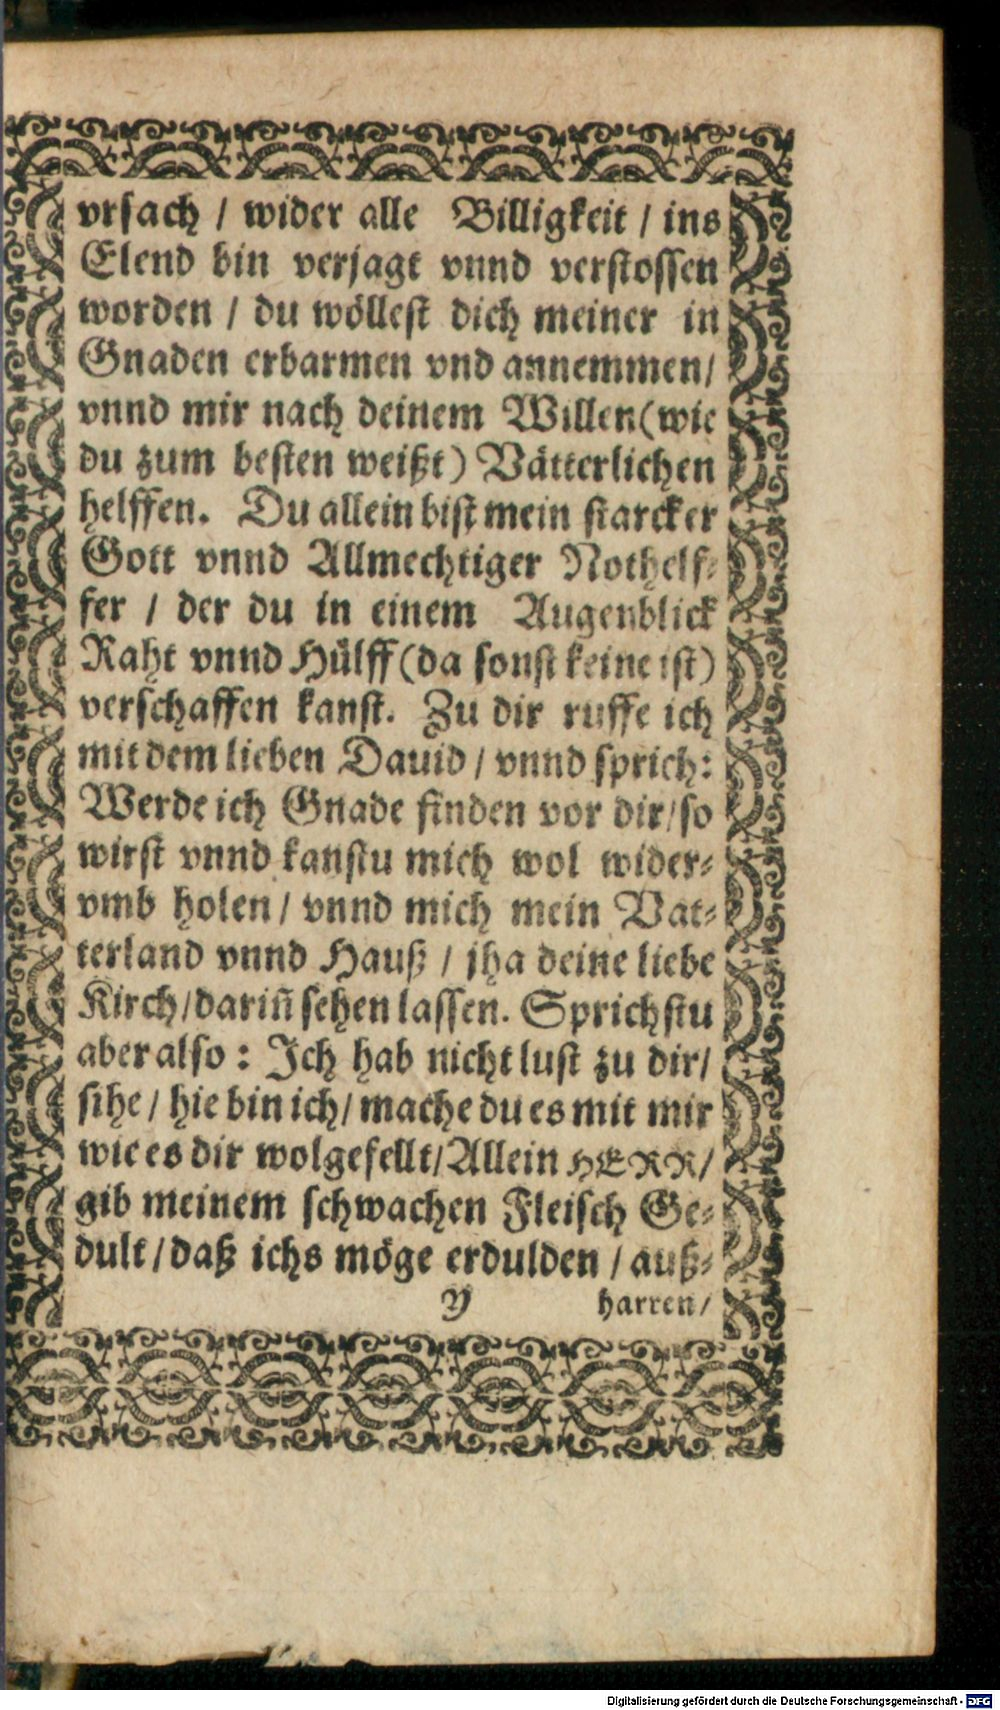 vrsach / wider alle Billigkeit / ins
Elend bin verjagt vnnd verstossen
worden / du wöllest dich meiner in
Gnaden erbarmen vnd annemmen/
vnnd mir nach deinem Willen(wie
du zum besten weißt) Vätterlichen
helffen. Du allein bist mein starcker
Gott vnnd Allmechtiger Nothelf-
fer / der du in einem Augenblick
Raht vnnd Hülff(da sonst keine ist)
verschaffen kanst. Zu dir ruffe ich
mit dem lieben Dauid / vnnd sprich:
Werde ich Gnade finden vor dir/so
wirst vnnd kanstu mich wol wider-
vmb holen / vnnd mich mein Vat-
terland vnnd Hauß / jha deine liebe
Kirch/darin̄ sehen lassen. Sprichstu
aber also : Ich hab nicht lust zu dir/
sihe / hie bin ich/ mache du es mit mir
wie es dir wolgefellt/Allein HERR/
gib meinem schwachen Fleisch Ge-
dult/daß ichs möge erdulden / auß-
Y harren/
Digitalisierung gefördert durch die Deutsche Forschungsgemeinschaft - DFG